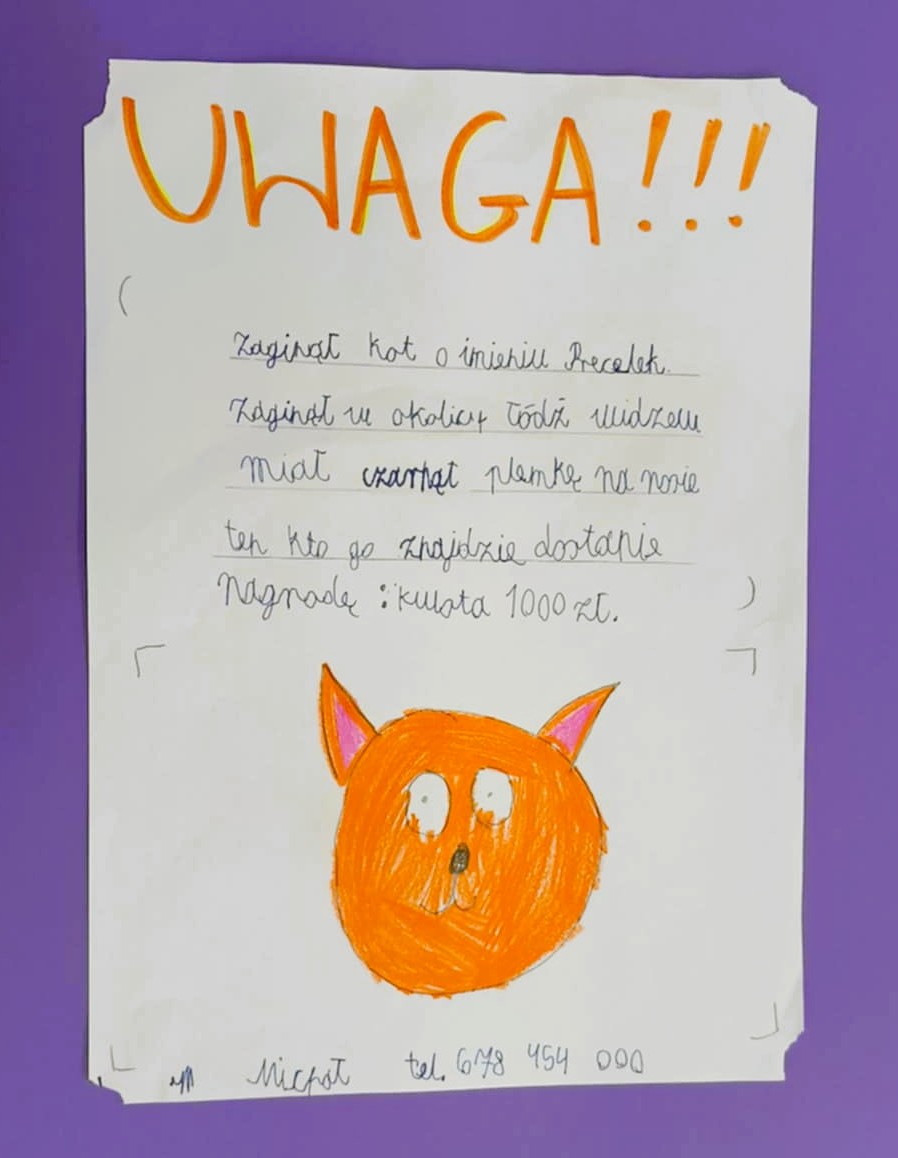 UWAGA!!!
Zaginął kot o imieniu Precelek.
Zaginął w okolicy Łódź widzew
miał czarnął plamkę na nosie
ten kto go znajdzie dostanie
nagrodę : kwota 1000 zł.
Michał tel. 678 454 000